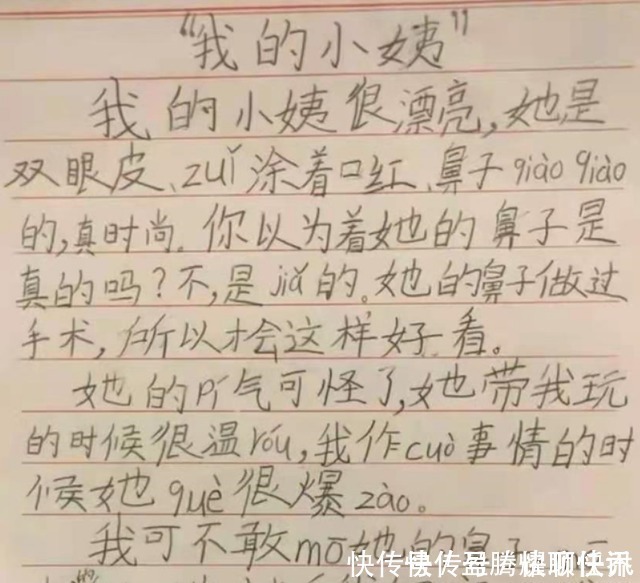 “我的小姨”
我的小姨很漂亮,她是
双眼皮、zuǐ涂着口红、鼻子qiào qiào
的,真时尚。你以为着她的鼻子是
真的吗?不,是jiǎ的。她的鼻子做过
手术,所以才会这样好看。
她的pí气可怪了,她带我玩
的时候很温róu,我作cuò事情的时
候她què很爆zào。
我可不敢mō她的鼻子
快传号